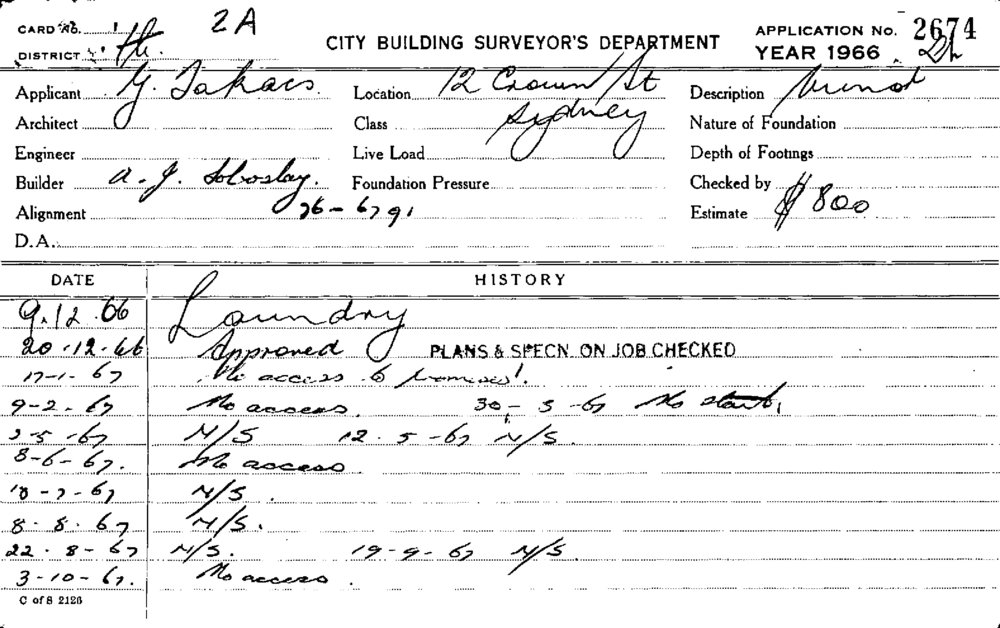 CARD No. 1 2A CITY BUILDING SURVEYOR'S DEPARTMENT APPLICATION No. 2674
DISTRICT YEAR 1966
Applicant G. Takacs Location 12 Crown St Description
Architect Class Sydney Nature of Foundation
Engineer Live Load Depth of Footings
Builder A. J. Foundation Pressure Checked by
Alignment 26-6791 Estimate $800
D.A.
DATE HISTORY
9.12.66 Laundry
20.12.66 Approved PLANS & SPECN. ON JOB CHECKED
17-1-67 No access to premises!
9-2-67 No access. 30-3-67 No start,
2-5-67 N/S 12.5-67 N/S.
8-6-67. No access
18-7-67 N/S.
8.8.67 N/S.
22.8-67 N/S. 19-9-67 N/S.
3-10-67. No access.
C of S 2126